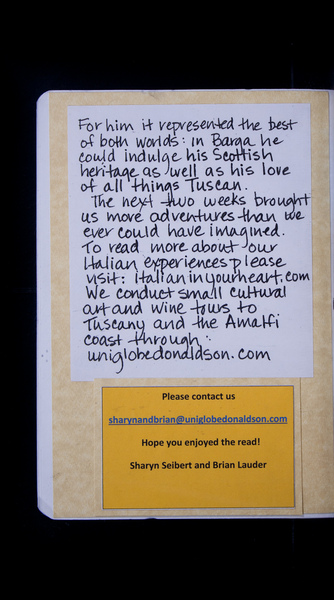 For him it represented the best
of both worlds: in Barga he
could indulge his Scottish
heritage as well as his love
of all things Tuscan.
The next two weeks brought
us more adventures than we
ever could have imagined.
To read more about our
Italian experiences please
visit: italianinyourheart.com
We conduct small cultural
art and wine tours to
Tuscany and the Amalfi
coast through:
uniglobedonaldson.com
Please contact us
sharynandbrian@uniglobedonaldson.com
Hope you enjoyed the read!
Sharyn Seibert and Brian Lauder